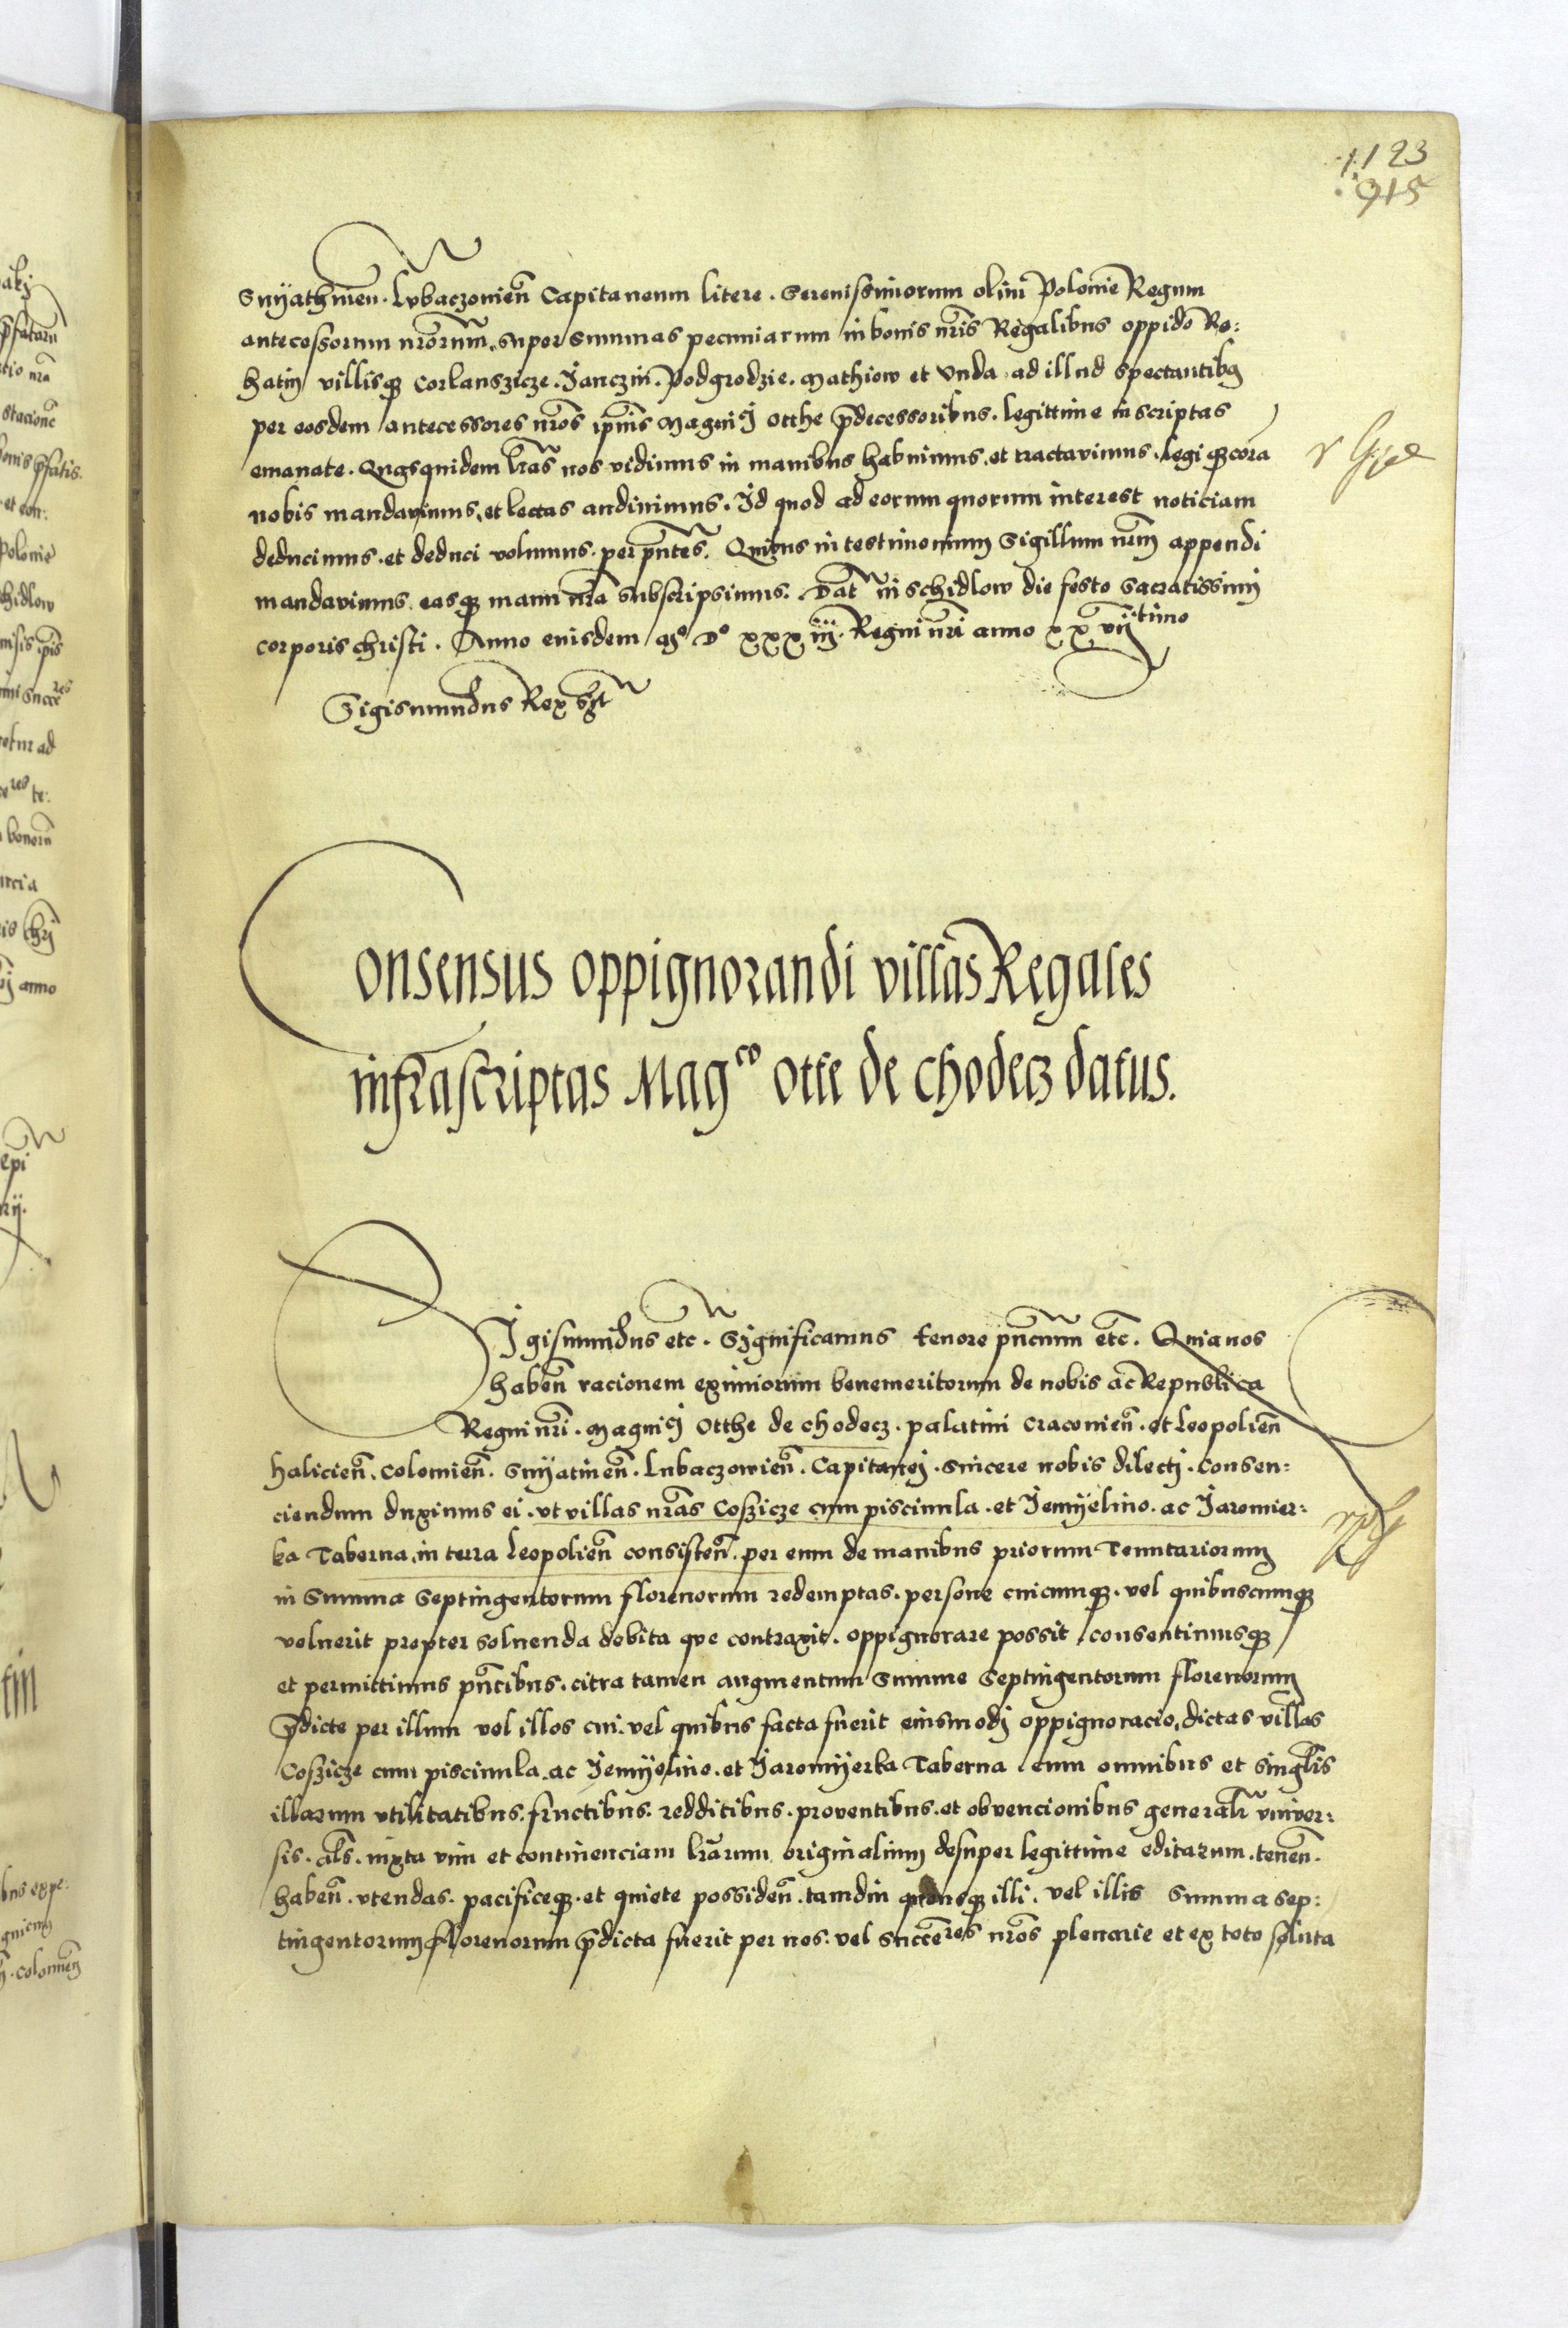 1123
915
Snyathinen̄. Lvbaczowien̄ Capitaneum litere. Serenissimorum olim Polonie Regum
antecessorum nrōrum, super summas pecuniarum in bonis nrīs Regalibus oppido Ro:
hatin villisqȝ Corlanszicze. Janczin. Podgrodzie. Mathiow et Unda ad illud spectantibq
per eosdem antecessores nrōs ip̄ius Magnici Otthe p̄decessoribus. legittime inscriptas
emanate. Qugsquidem lrās nos vidimus in manibus habuimus. et tractavimus. Legi qȝ corā
nobis mandavimus, et lectas audivimus. Id quod ad eorum quorum interest noticiam
deducimus. et deduci volumus. per pn̄tes. Quibus in testimonium Sigillum nrm̄ appendi
mandavimus. easqȝ manu nrā subscripsimus. Dat̄ in Schidlow die festo Sacratissimi
corporis christi. Anno eiusdem Mº Dº xxxiij. Regni nrī anno xxvijtimo
Sigismundus Rex sst
Consensus oppignorandi villas Regales
infrascriptas Magco Otte de Chodecz datus.
Sigismundus etc. Significamus tenore pn̄cium etc̄. Quia nos
haben̄ racionem eximiorum benemeritorum de nobis ac Republica
Regni nrī. Magnici Otthe de Chodecz. palatini Cracovien̄. et Leopolien̄
halicien̄. Colomien̄. Snyatinen̄. Lubaczowien̄. Capitanej. Sincere nobis dilecti. Consen:
ciendum duximus ei. vt villas nrās Coszicze cum piscinula. et Jemyelino. ac Jaromier:
ka Taberna, in terra Leopolien̄ consisten̄. per eum de manibus priorum Tenutariorum
in Summa Septingentorum florenorum redemptas. persone cuicumqȝ. vel quibuscumqȝ
voluerit propter solvenda debita que contraxit. oppignorare possit. consentimusqȝ
et permittimus pn̄tibus. citra tamen augmentum Summe Septingentorum florenorum
p̄dicte per illum vel illos cui. vel quibus facta fuerit eiusmodi oppignoracio, dictas villas
Coszicze cum piscinula. ac Jemyelino. et Jaromyerka Taberna. cum omnibus et singlis
illarum vtilitatibus. fructibus. redditibus. proventibus. et obvencionibus generalr vniver:
sis. als̄. iuxta vim et continenciam lrārum originalium desuper legittime editarum. tenen̄.
haben̄. vtendas. pacificeqȝ. et quiete possiden̄. tamdiu quousqȝ illi. vel illis Summa sep:
tingentorum florenorum p̄dicta fuerit per nos. vel Succēres nrōs plenarie et ex toto soluta